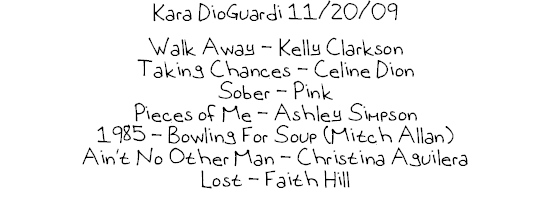 Kara DioGuardi 11/20/09
Walk Away - Kelly Clarkson
Taking Chances - Celine Dion
Sober - Pink
Pieces of Me - Ashley Simpson
1985 - Bowling For Soup (Mitch Allan)
Ain't No Other Man - Christina Aguilera
Lost - Faith Hill